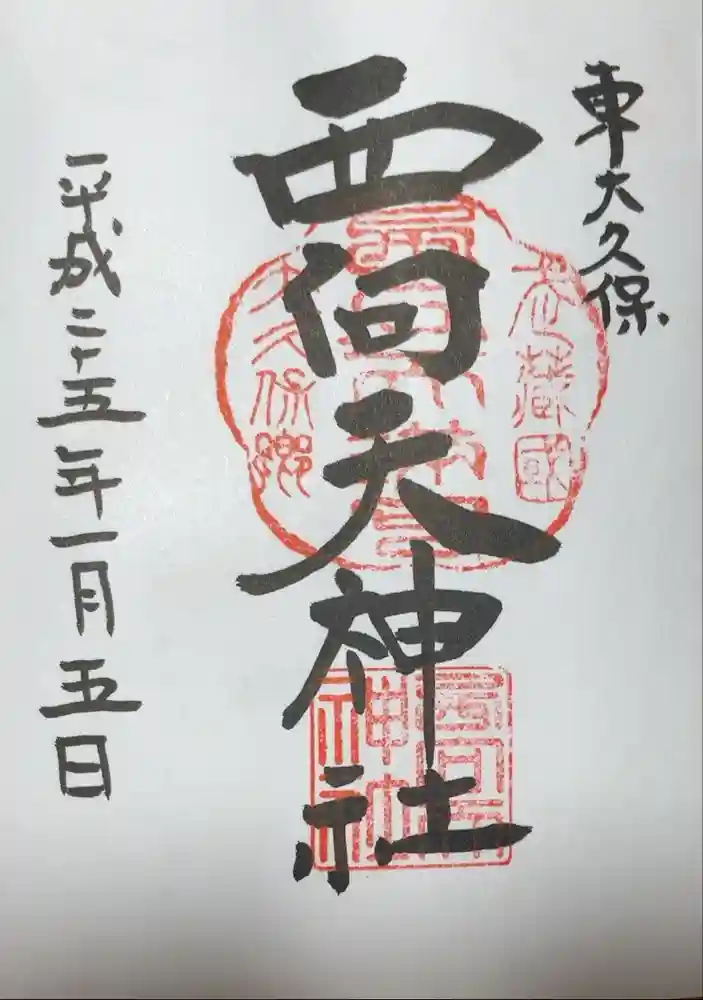 東大久保
西向天神社
平成二十五年一月五日
武蔵国
大久保郷
西向天
神社